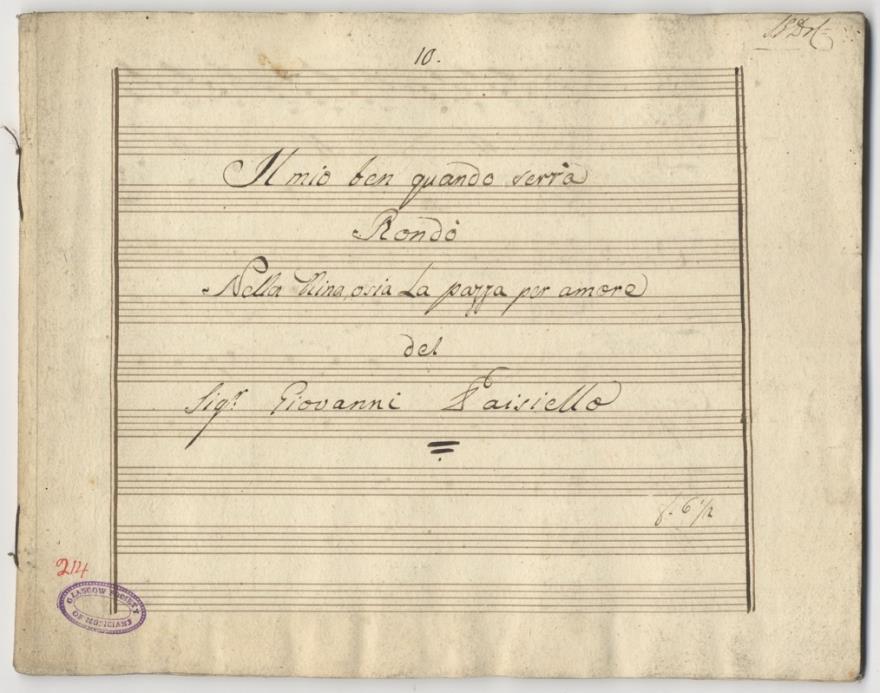 10.
Il mio ben quando serrà
Rondò
Nella Nina, osia La pazza per amore
del
Sigr. Giovanni Paisiello
f. 6 1/2
214
GLASGOW SOCIETY
OF MUSICIANS